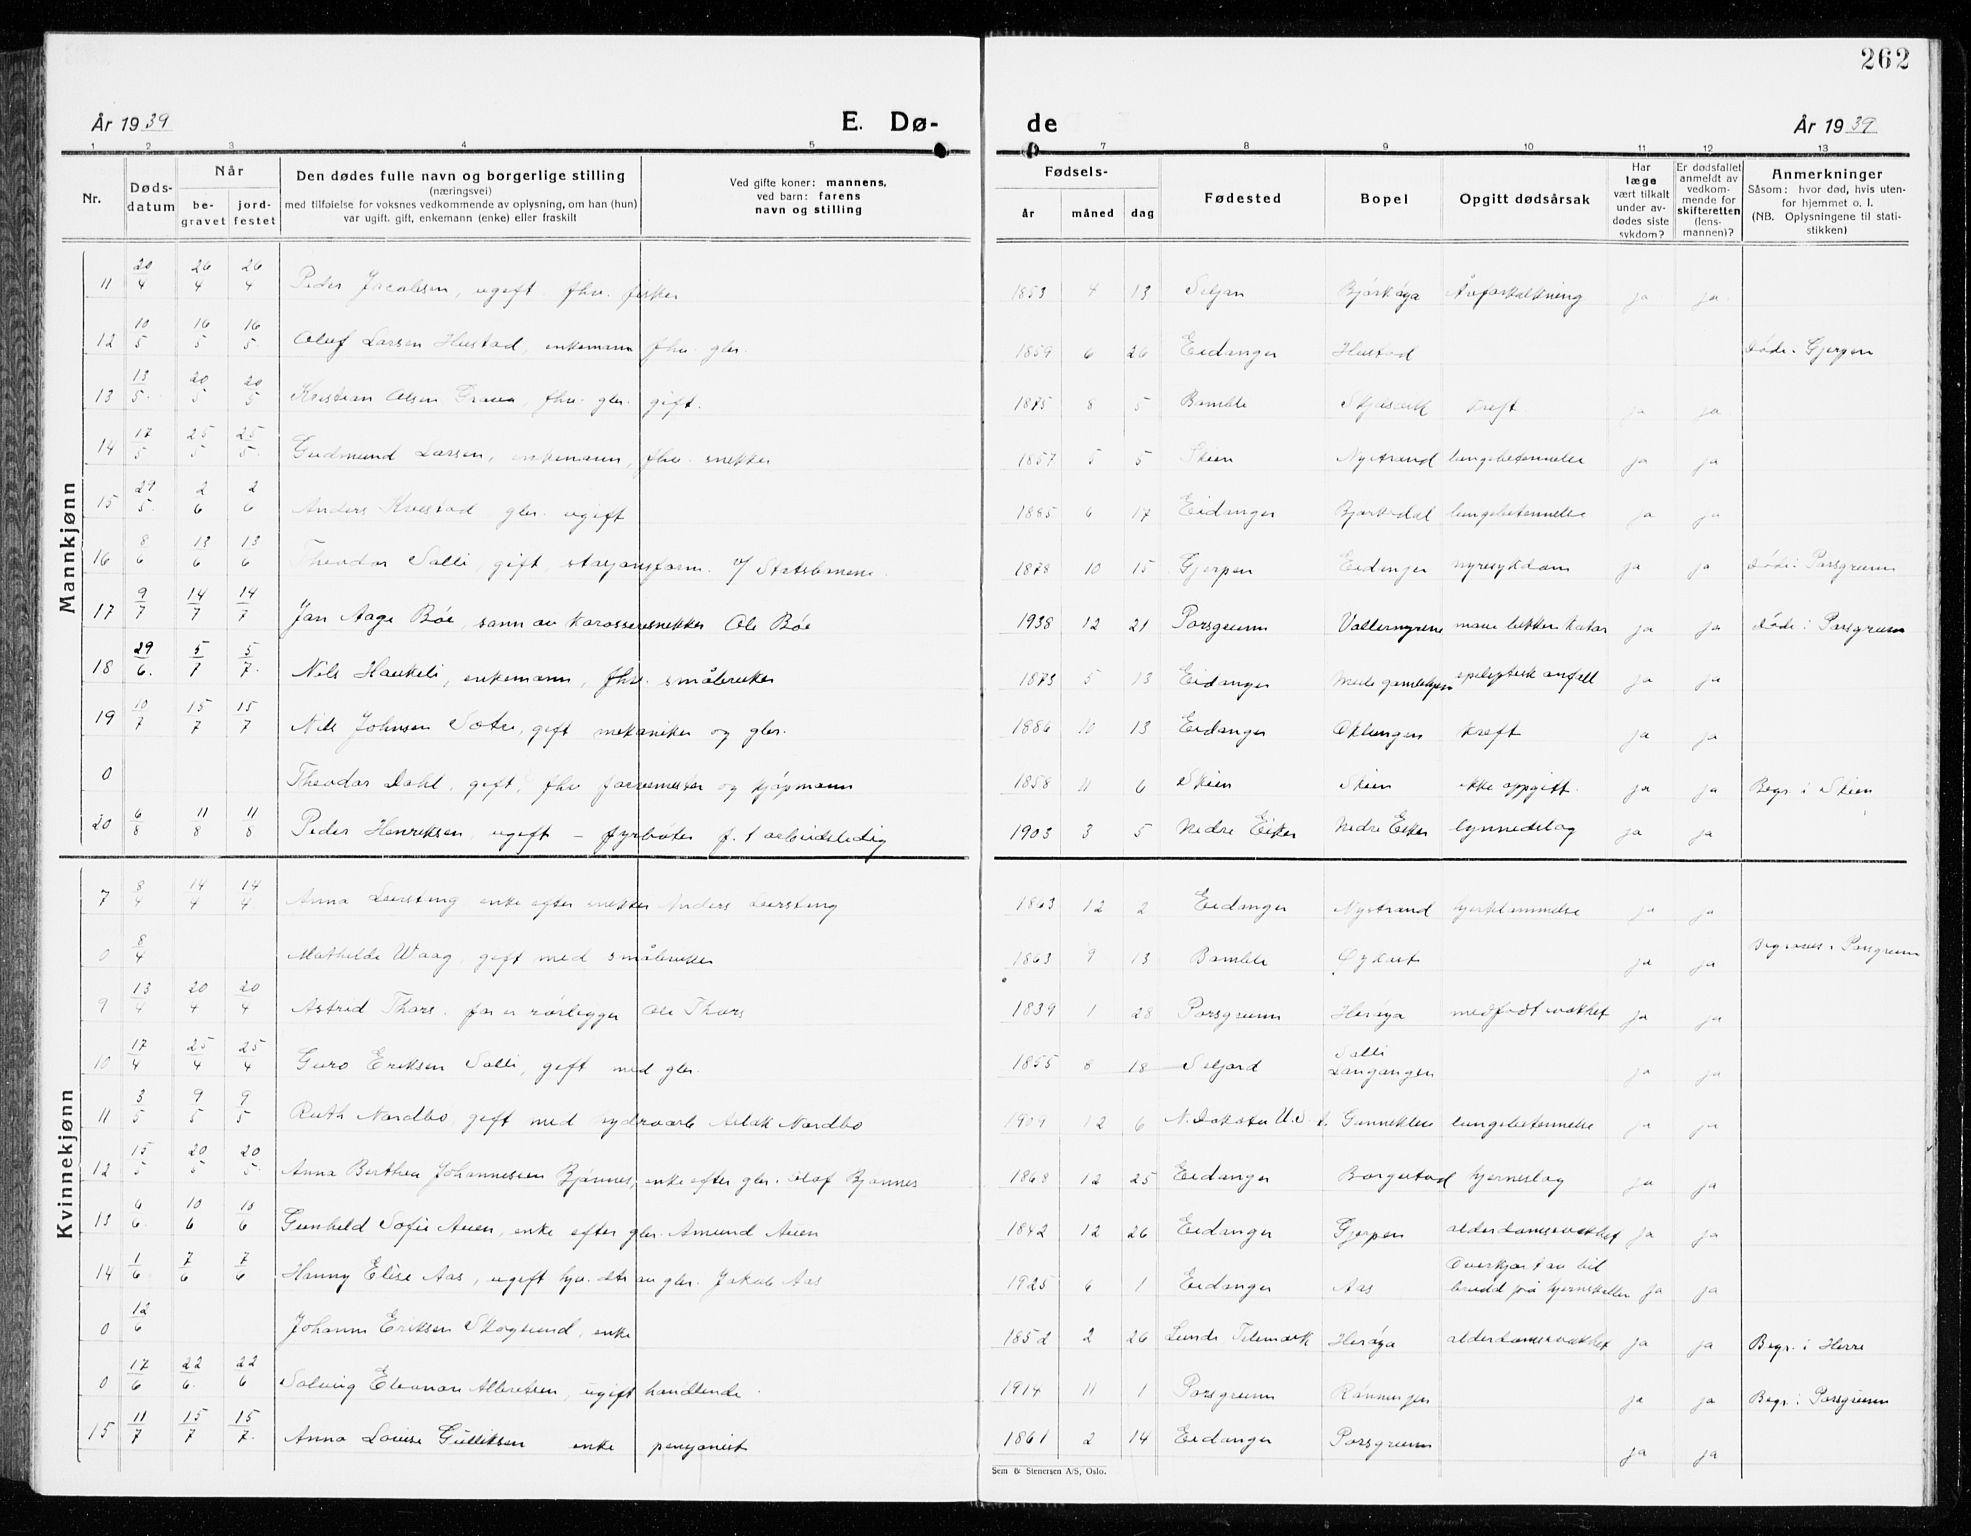 262
År 1939 E. Dø- de År 1939
1 2 3 4 5 7 8 9 10 11 12 13
Nr. Døds-datum Når be-gravet jord-festet Den dødes fulle navn og borgerlige stilling (næringsvei) med tilføielse for voksnes vedkommende av oplysning, om han (hun) var ugift, gift, enkemann (enke) eller fraskilt Ved gifte koner: mannens, ved barn: farens navn og stilling Fødsels- år måned dag Fødested Bopel Opgitt dødsårsak Har læge vært tilkalt under av-dødes siste sykdom? Er dødsfallet anmeldt av vedkom-mende for skifteretten (lens-mannen)? Anmerkninger Såsom: hvor død, hvis uten-for hjemmet o. l. (NB. Oplysningene til stati-stikken)
Mannkjønn
11 20/4 26/4 26/4 Peder Jacobsen, ugift. fhv. fisker 1853 4 13 Seljan Bjørkøya Åreforkalkning ja ja
12 10/5 16/5 16/5 Oluf Larsen Hustad, enkemann fhv. gbr. 1859 6 26 Eidanger Hustad døde i Gjerpen
13 13/5 20/5 20/5 Kristian Olsen fhv. gbr. gift. 1875 8 5 Bamble kreft ja ja
14 17/5 25/5 25/5 Gudmund Larsen, enkemann, fhv. snekker 1857 5 5 Skien Nystrand lungebetennelse ja ja
15 29/5 2/6 2/6 Anders Kvestad gbr. ugift 1885 6 17 Eidanger Bjørkedal lungebetennelse ja ja
16 8/6 13/6 13/6 Theodor Salli, gift, stasjonsform. v/ Statsbanene. 1878 10 15 Gjerpen Eidanger nyresykdom ja ja døde i Porsgrunn
17 9/7 14/7 14/7 Jan Aage Bøe, sønn av karosserisnekker Ole Bøe 1938 12 21 Porsgrunn Vallermyrene mave lukken katar ja ja døde i Porsgrunn
18 29/6. 5/7 5/7. Nils Haukeli, enkemann, fhv. småbruker 1873 5 13 Eidanger gamlehjem epileptisk anfall ja ja
19 10/7 15/7 15/7 Nils Johnsen Sætre, gift mekaniker og gbr. 1886 10 13 Eidanger Oklungen kreft ja ja
0 Theodor Dahl, gift, fhv farvemester og kjøpmann 1858 11 6 Skien Skien ikke oppgitt. ja ja Begr. i Skien
20 6/8 11/8 11/8 Peder Henriksen, ugift – fyrbøter f. t arbeidsledig 1903 3 5 Nedre Eiker Nedre Eiker lynnedslag ja ja
Kvinnekjønn
7 8/4 14/4 14/4 Anna Leersteng enke efter snekker Anders Leersteng 1863 12 2 Eidanger Nystrand hjertelammelse ja ja
0 8/4 Mathilde Waag, gift med småbruker 1863 9 13 Bamble Øyekast ja ja Begraves i Porsgrunn
9 13/4 20/4 20/4 Astrid Thors. far er rørlegger Ole Thors 1839 1 28 Porsgrunn Herøya medfødt svakhet ja ja
10 17/4 25/4 25/4 Guro Eriksen Salli, gift med gbr. 1855 8 18 Seljord Salli Langangen ja ja
11 3/5 9/5 9/5 Ruth Nordbø, gift med hydroarb Aslak Nordbø 1909 12 6 N. Dakota U.S.A. Gunneklev lungebetennelse ja ja
12 15/5 20/5 20/5. Anna Berthea Johannessen Bjønnes, enke efter gbr. Olaf Bjønnes 1868 12 25 Eidanger Borgestad hjerneslag ja ja
13 6/6. 10/6 10/6 Gunhild Sofie Auen, enke efter gbr. Amund Auen 1842 12 26 Eidanger Gjerpen alderdomssvakhet ja ja
14 1/6 7/6 7/6 Hanny Elise Aas, ugift hjv. dtr av gbr. Jakob Aas 1925 6 1 Eidanger Aas Overkjørt av bil brudd på hjerneskallen ja ja
0 12/6 Johanne Eriksen Skogsund, enke 1852 2 26 Lunde Telemark Herøya alderdomssvakhet ja ja Begr. i Herre
0 17/6 22/6. 22/6 Solveig Eleonore Albretsen, ugift handlende. 1914 11 1 Porsgrunn Rønningen ja ja Begr. i Porsgrunn
15 11/7 15/7 15/7. Anna Louise Gulliksen enke pensjonist 1861 2 14 Eidanger Porsgrunn ja ja
Sem & Stenersen A/S, Oslo.